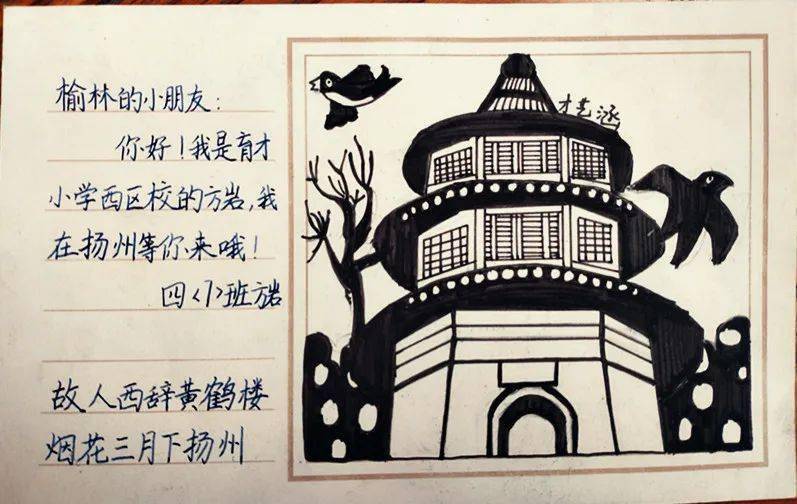 榆林的小朋友：
你好！我是育才
小学西区校的方岩，我
在扬州等你来哦！
四〈7〉班方岩
故人西辞黄鹤楼
烟花三月下扬州
才艺涵